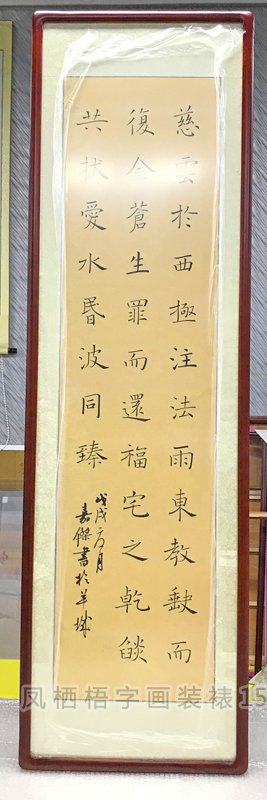 慈雲於西極注法雨東教缺而
復全蒼生罪而還福宅之乾燄
共拔愛水昬波同臻
戊戌六月
嘉傑書於羊城
凤栖梧字画装裱15